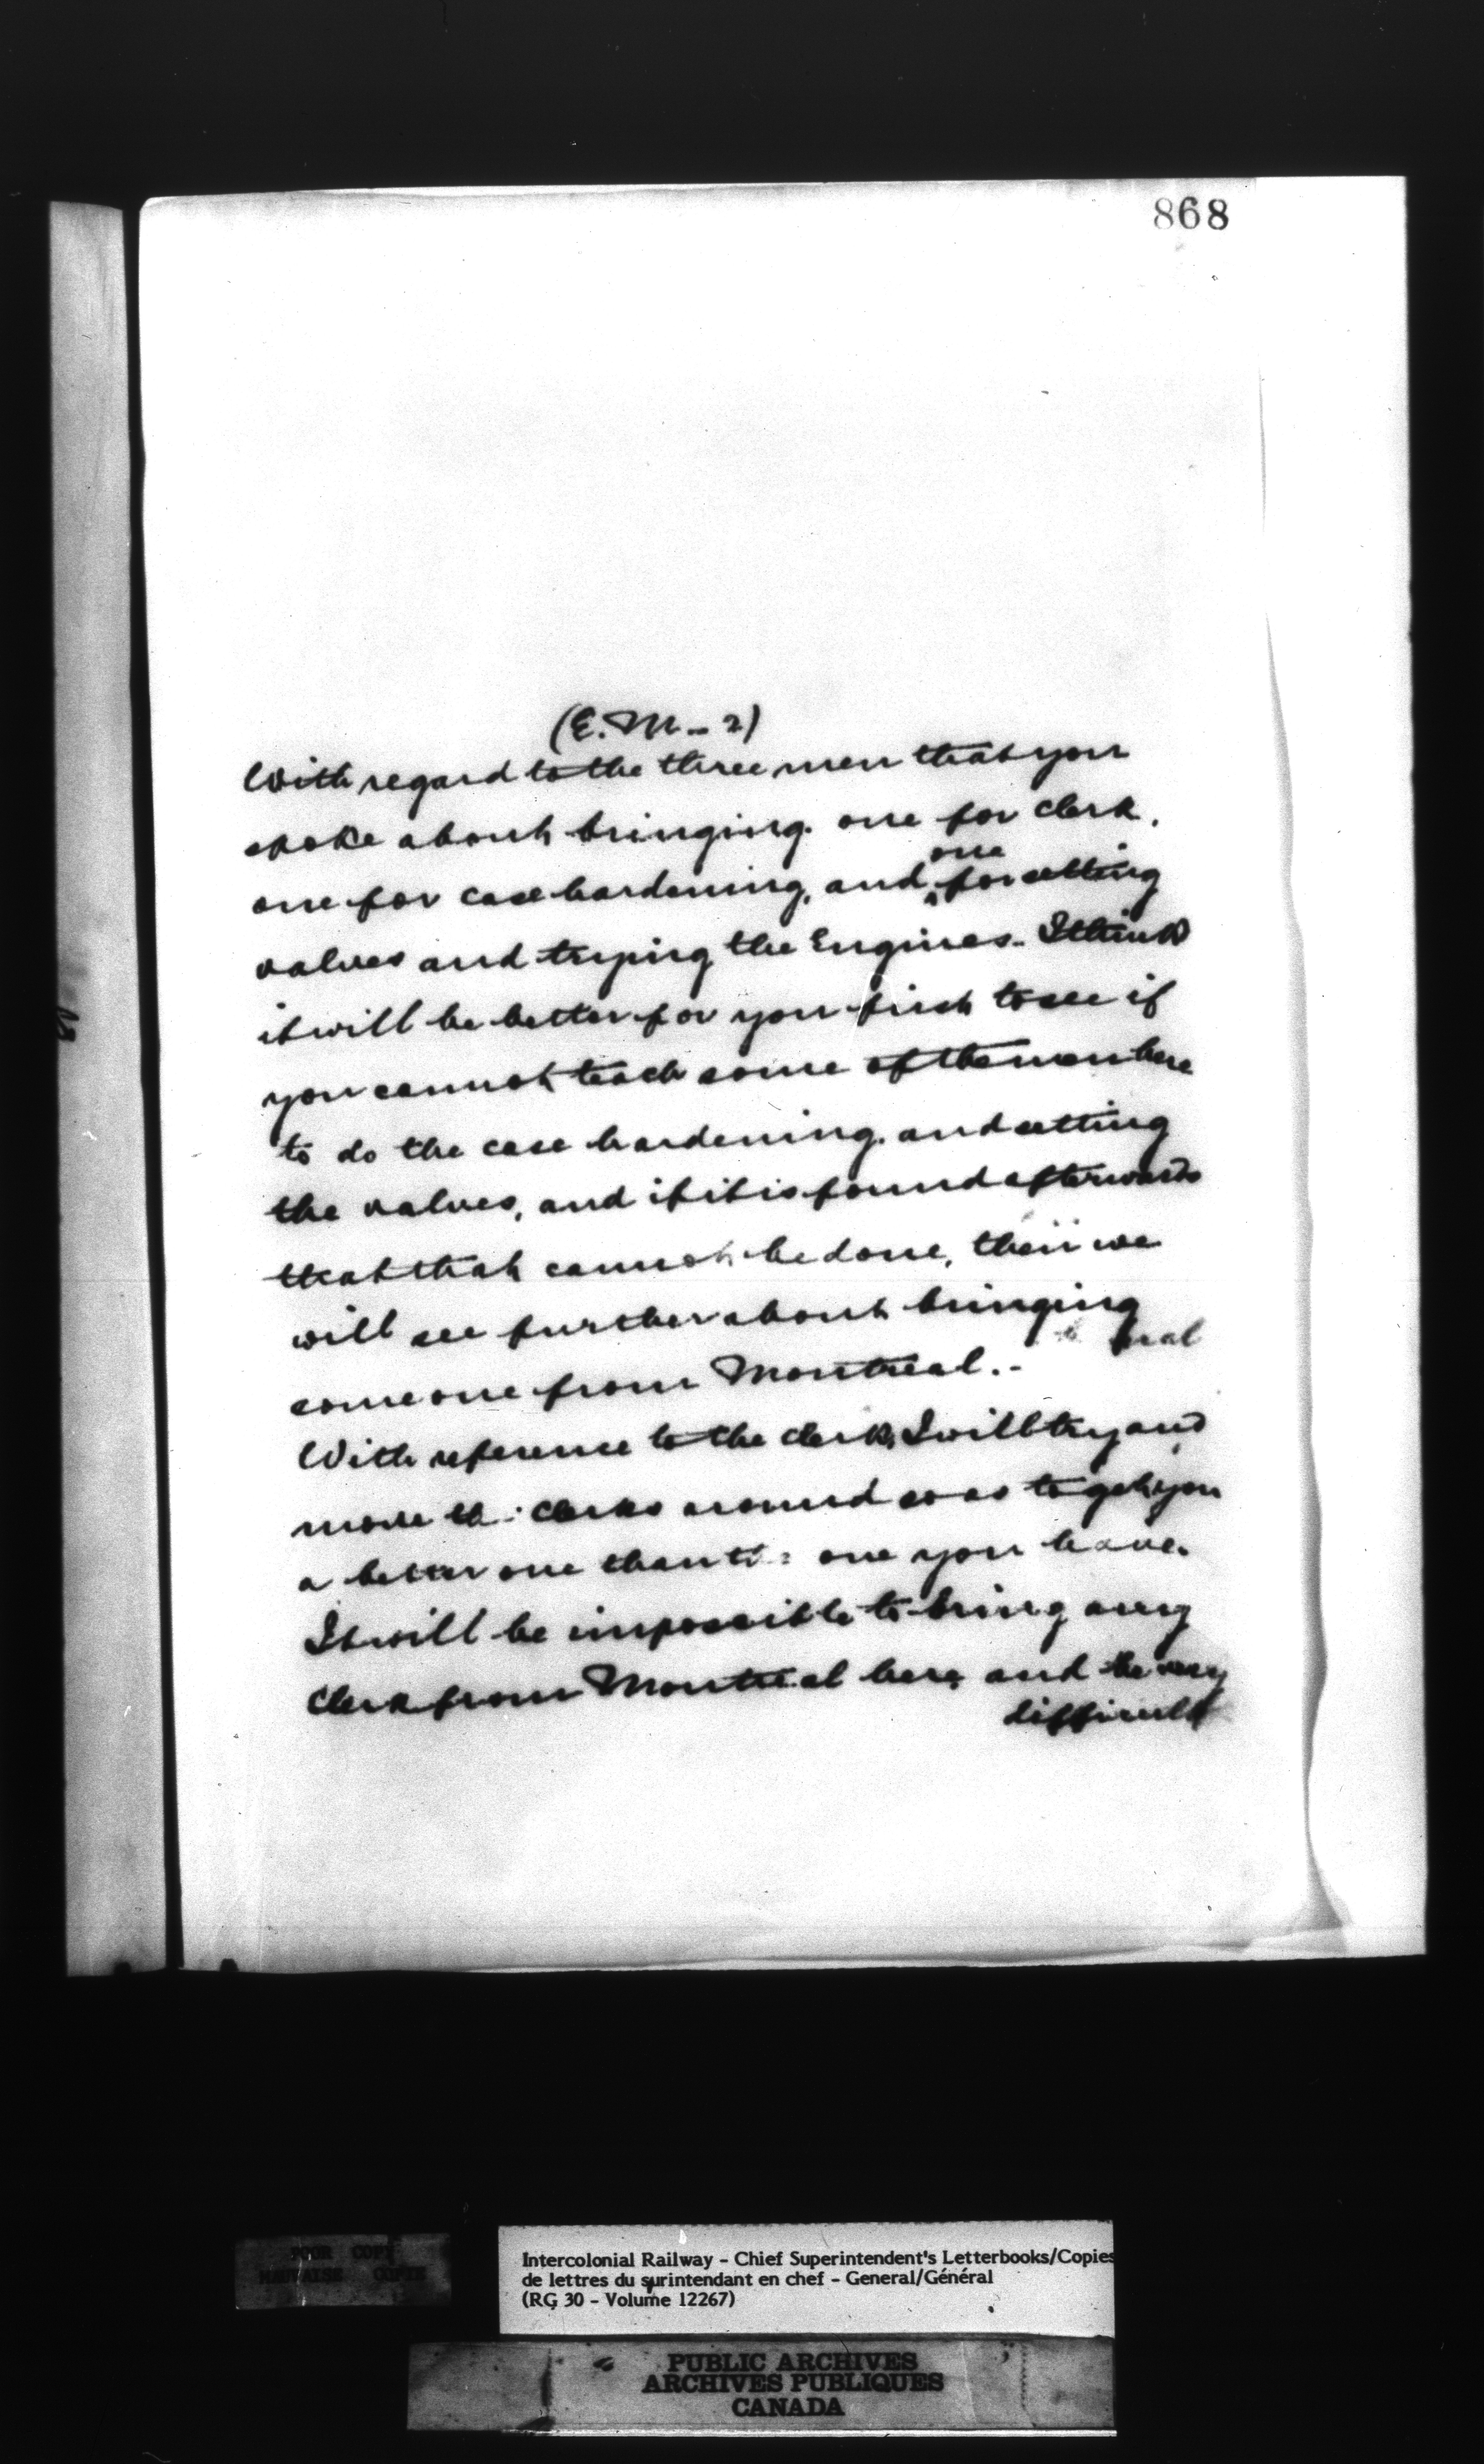 868
(E. M - 2)
With regard to the three men that you
spoke about bringing. one for clerk.
one for case hardening, and one for setting
valves and trying the Engines - I think
it will be better for you first to see if
you cannot teach some of the men here
to do the case hardening. and setting
the valves, and if it is found afterwards
that that cannot be done, then we
will see further about bringing
some one from Montreal. -
With reference to the clerk, I will try and
move the clerks around so as to get you
a better one than the one you have.
It will be impossible to bring any
Clerk from Montreal here and the very
difficult
POOR COPY
MAUVAISE COPIE
Intercolonial Railway - Chief Superintendent's Letterbooks/Copies
de lettres du surintendant en chef - General/Général
(RG 30 - Volume 12267)
PUBLIC ARCHIVES
ARCHIVES PUBLIQUES
CANADA